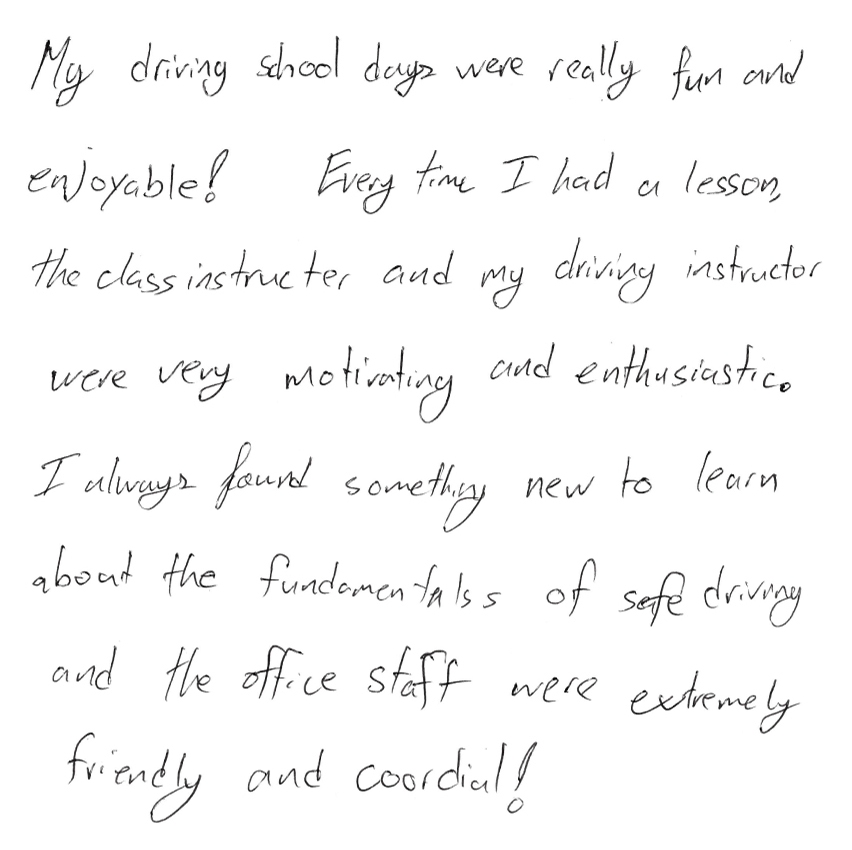 My driving school days were really fun and
enjoyable! Every time I had a lesson,
the class instructer and my driving instructor
were very motivating and enthusiastic.
I always found something new to learn
about the fundamentalss of safe driving
and the office staff were extremely
friendly and coordial!